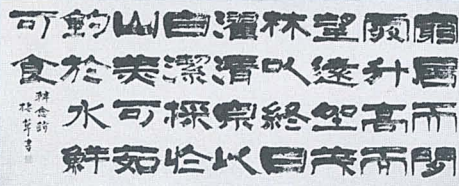 窮居而閒
處升高而
望遠坐茂
林以終日
濯清泉以
自潔採於
山美可茹
釣於水鮮
可食
韓愈句
書